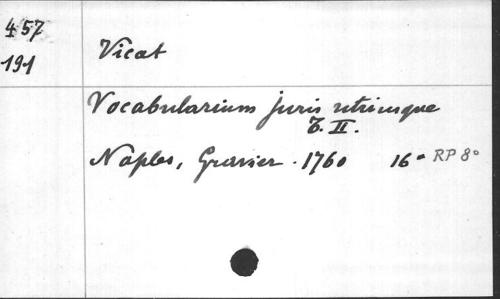 457
191
Vicat
Vocabularium juris utriusque
T. II.
Naples, Gravier. 1760 16° RP 8°